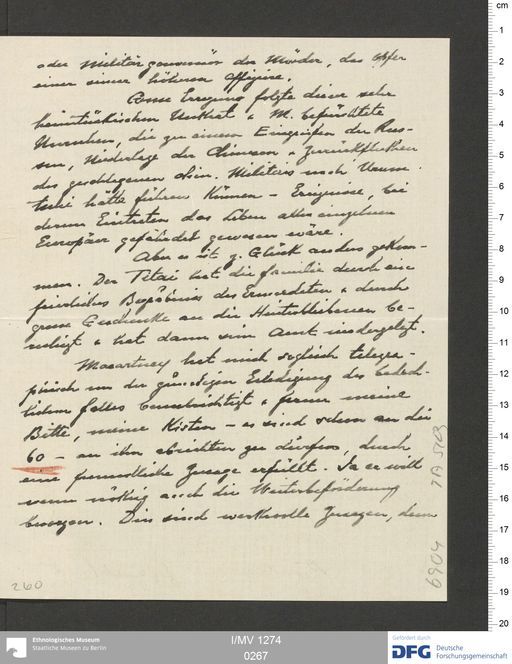 oder Militärgouverneur der Mörder, das Opfer
einer seiner höheren Offiziere.
Grosse Erregung folgte dieser sehr
heimtückischen Untat, & M. befürchtete
Unruhen, die zu einem Eingreifen der Rus-
sen, Niederlage der Chinesen & Zurückfluthen
des geschlagenen chin. Militärs nach Urum-
tschi hätte führen können – Ereignisse, bei
deren Eintreten das Leben aller einzelnen
Europäer gefährdet gewesen wäre.
Aber es ist z. Glück anders gekom-
men. Der Titai hat die Familie durch ein
feierliches Begräbnis des Ermordeten & durch
grosse Geschenke an die Hinterbliebenen be-
ruhigt & hat dann sein Amt niedergelegt.
Macartney hat mich sogleich telegra-
phisch von der günstigen Erledigung des bedenk-
lichen Falles benachrichtigt & ferner meine
Bitte, meine Kisten – es sind schon an die
60 – an ihn abrichten zu dürfen, durch
eine freundliche Zusage erfüllt. Ja er will
wenn nötig auch die Weiterbeförderung
besorgen. Dies sind wertvolle Zusagen, denn
260
6904
cm
1
2
3
4
5
6
7
8
9
10
11
12
13
14
15
16
17
18
19
20
Ethnologisches Museum
Staatliche Museen zu Berlin
I/MV 1274
0267
Gefördert durch
DFG Deutsche
Forschungsgemeinschaft